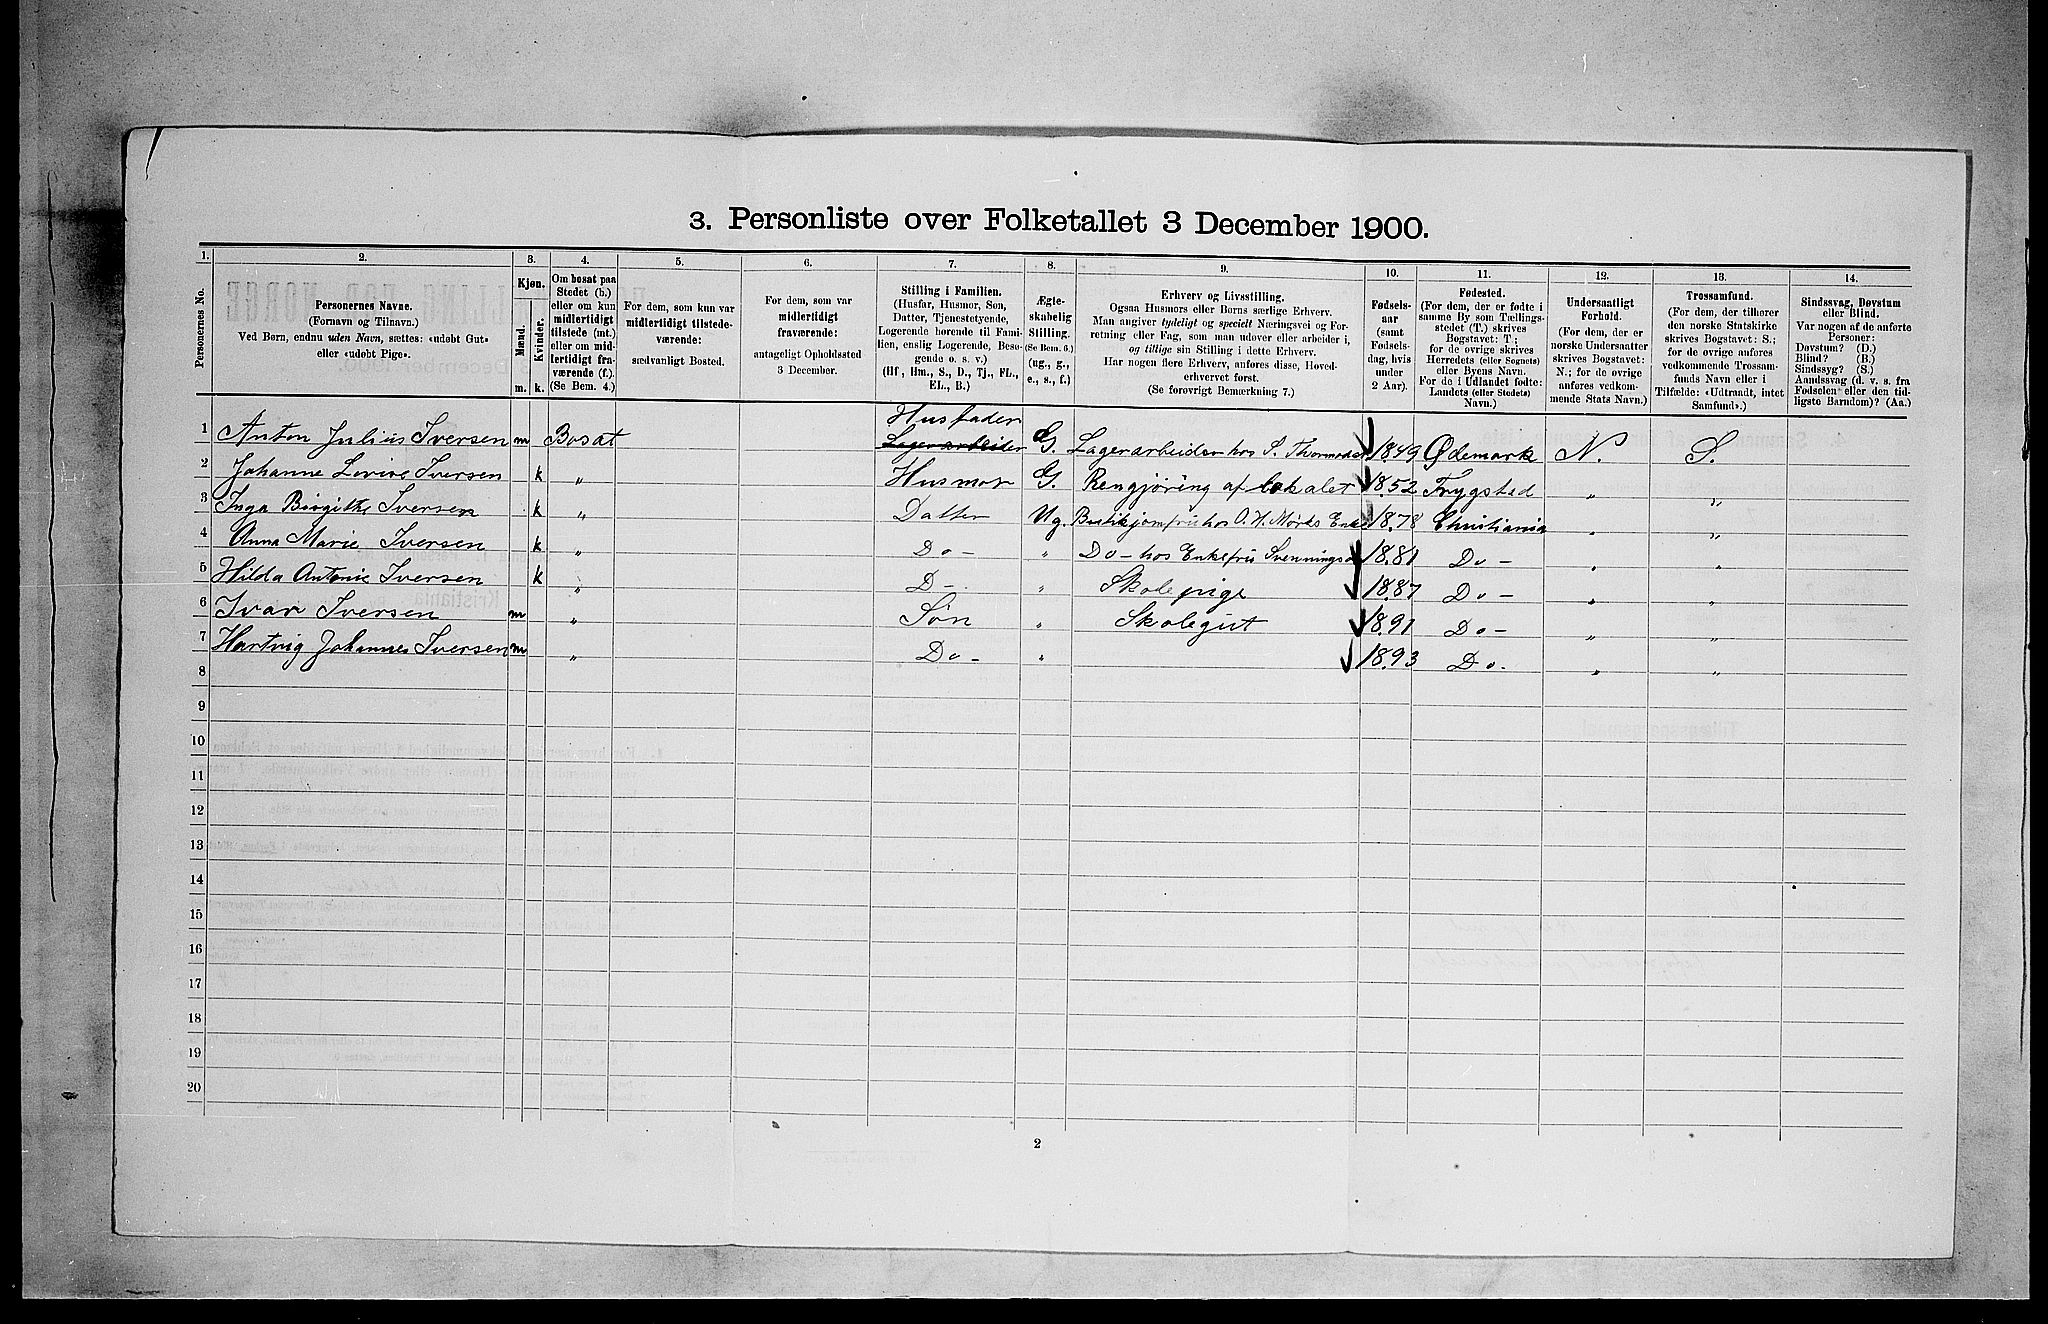 3. Personliste over Folketallet 3 December 1900.
1. 2. 3. 4. 5. 6. 7. 8. 9. 10. 11. 12. 13. 14.
Personernes No.
Personernes Navne.
(Fornavn og Tilnavn.)
Ved Børn, endnu uden Navn, sættes: «udøbt Gut»
eller «udøbt Pige».
Kjøn.
Mænd.
Kvinder.
m. k.
Om bosat paa
Stedet (b.)
eller om kun
midlertidigt
tilstede (mt.)
eller om mid-
lertidigt fra-
værende (f.).
(Se Bem. 4.)
For dem, som kun var
midlertidigt tilstede-
værende:
sædvanligt Bosted.
For dem, som var
midlertidigt
fraværende:
antageligt Opholdssted
3 December.
Stilling i Familien.
(Husfar, Husmor, Søn,
Datter, Tjenestetyende,
Logerende hørende til Fami-
lien, enslig Logerende, Besø-
gende o. s. v.)
(Hf, Hm., S., D., Tj., FL.,
EL., B.)
Ægte-
skabelig
Stilling.
(Se Bem. 6.)
(ug., g.,
e., s., f.)
Erhverv og Livsstilling.
Ogsaa Husmors eller Børns særlige Erhverv.
Man angiver tydeligt og specielt Næringsvei og For-
retning eller Fag, som man udøver eller arbeider i,
og tillige sin Stilling i dette Erhverv.
Har nogen flere Erhverv, anføres disse, Hoved-
erhvervet først.
(Se forøvrigt Bemærkning 7.)
Fødsels-
aar
(samt
Fødsels-
dag, hvis
under
2 Aar).
Fødested.
(For dem, der er fødte i
samme By som Tællings-
stedet (T.) skrives
Bogstavet: T.;
for de øvrige skrives
Herredets (eller Sognets)
eller Byens Navn.
For de i Udlandet fødte:
Landets (eller Stedets)
Navn.)
Undersaatligt
Forhold.
(For dem, der er
norske Undersaatter
skrives Bogstavet:
N.; for de øvrige
anføres vedkom-
mende Stats Navn.)
Trossamfund.
(For dem, der tilhører
den norske Statskirke
skrives Bogstavet: S.;
for de øvrige anføres
vedkommende Trossam-
funds Navn eller i
Tilfælde: «Udtraadt, intet
Samfund».)
Sindssvag, Døvstum
eller Blind.
Var nogen af de anførte
Personer:
Døvstum? (D.)
Blind? (B.)
Sindssyg? (S.)
Aandssvag (d. v. s. fra
Fødselen eller den tid-
ligste Barndom)? (Aa.)
Husfader
1 Anton Julius Iversen m Bosat Lagerarbeider G. Lagerarbeider hos S. 1849 Ødemark N. S.
2 Johanne Lovise Iversen k " Husmor G. Rengjøring af lokalet 1852 Trygstad " "
3 Inga Birgithe Iversen k " Datter Ug. Butikjomfru hos O. H. Mørks Enke 1878 Christiania " "
4 Anna Marie Iversen k " Do - " Do - hos Enkefru 1881 Do - " "
5 Hilda Antonie Iversen k " D - " Skolepige 1887 Do - " "
6 Ivar Iversen m " Søn " Skolegut 1891 Do - " "
7 Hartvig Johannes Iversen m " Do - " 1893 Do. " "
8
9
10
11
12
13
14
15
16
17
18
19
20
2